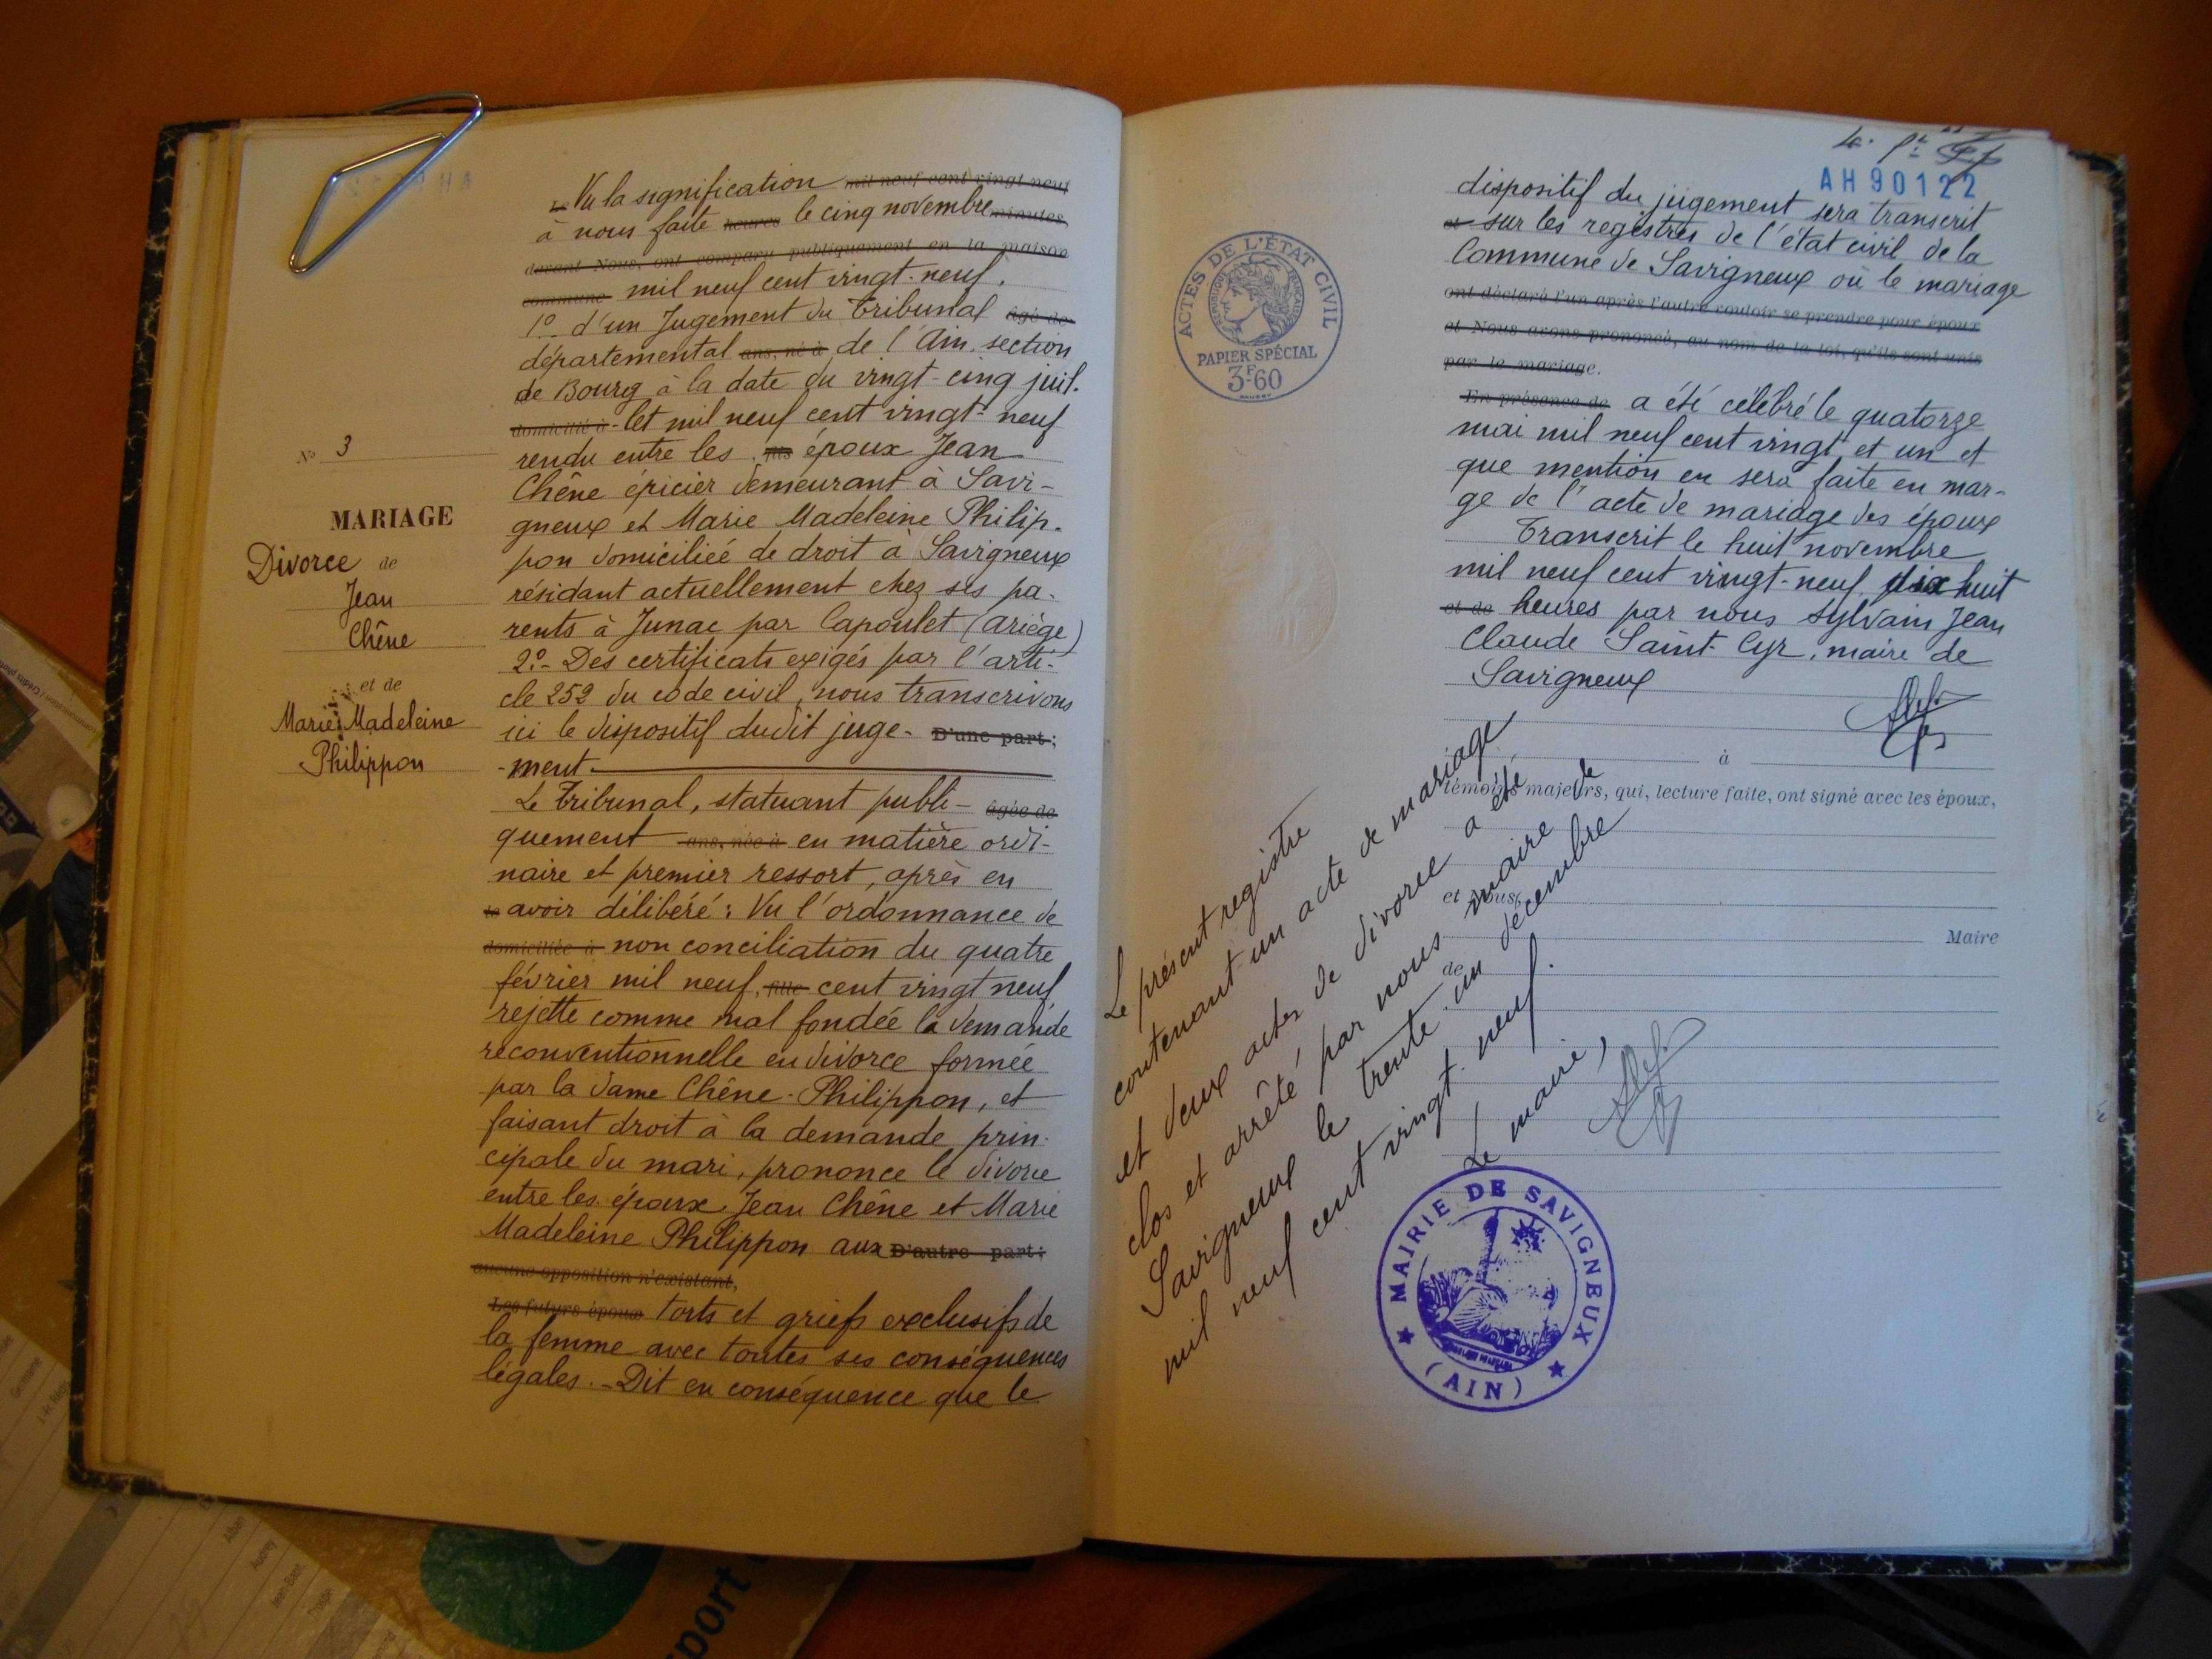 N° 3
MARIAGE
Divorce de
Jean
Chêne
et de
Marie Madeleine
Philippon
Le Vu la signification mil neuf cent vingt neuf
à nous faite heures le cinq novembre minutes,
devant Nous, ont comparu publiquement en la maison
commune mil neuf cent vingt-neuf.
1° d'un Jugement du Tribunal âgé de
départemental ans, né à de l'Ain, section
de Bourg à la date du vingt-cinq juil-
domicilié à -let mil neuf cent vingt-neuf
rendu entre les fils époux Jean
Chêne épicier demeurant à Savi-
gneux et Marie Madeleine Philip-
pon domiciliée de droit à Savigneux
résidant actuellement chez ses pa-
rents à Junac par Capoulet (Ariège)
2°- Des certificats exigés par l'arti-
cle 252 du code civil, nous transcrivons
ici le dispositif dudit juge- D'une part;
-ment.
Le Tribunal, statuant publi- âgée de
quement ans, née à en matière ordi-
naire et premier ressort, après en
le avoir délibéré: Vu l'ordonnance de
domiciliée à non conciliation du quatre
février mil neuf fille cent vingt neuf
rejette comme mal fondée la demande
reconventionnelle en divorce formée
par la dame Chêne-Philippon, et
faisant droit à la demande prin-
cipale du mari, prononce le divorce
entre les époux Jean Chêne et Marie
Madeleine Philippon aux D'autre part:
aucune opposition n'existant,
Les futurs époux torts et griefs exclusifs de
la femme avec toutes ses conséquences
légales. - Dit en conséquence que le
AH90122
dispositif du jugement sera transcrit
et sur les registres de l'état civil de la
Commune de Savigneux où le mariage
ont déclaré l'un après l'autre vouloir se prendre pour époux
et Nous avons prononcé, au nom de la loi, qu'ils sont unis
par le mariage.
En présence de a été célébré le quatorze
mai mil neuf cent vingt et un et
que mention en sera faite en mar-
ge de l'acte de mariage des époux
Transcrit le huit novembre
mil neuf cent vingt-neuf, dix huit
et de heures par nous Sylvain Jean
Claude Saint-Cyr, maire de
Savigneux
à
témoins majeurs, qui, lecture faite, ont signé avec les époux,
et Nous,
Maire
de
ACTES DE L'ÉTAT CIVIL
RÉPUBLIQUE FRANÇAISE
PAPIER SPÉCIAL
3F60
Le présent registre
contenant un acte de mariage
et deux actes de divorce a été
clos et arrêté par nous maire de
Savigneux le trente-un décembre
mil neuf cent vingt-neuf.
Le maire,
MAIRIE DE SAVIGNEUX
(AIN)
port